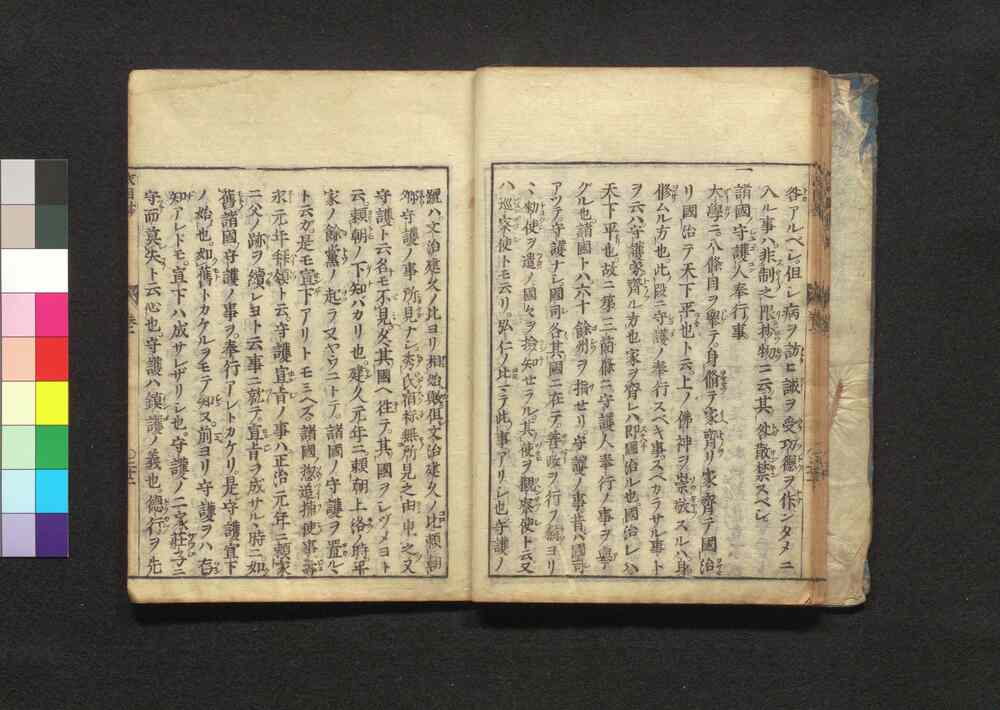 咎アルベシ但シ病ヲ訪ヒ誡ヲ受功德ヲ作ンタメニ
入ル事ハ非制之限抄物ニ云其咎散禁スベシ
一
諸國守護人奉行事
大學ニ八條目ヲ擧テ身脩テ家齊リ家齊テ國治
リ國治テ天下平也ト云上ノ佛神ヲ崇敬スルハ身
脩ムル方也此段ニ守護ノ奉行スベキ事スベカラサル事ト
ヲ云ハ守護家齊ル方也家ヲ齊レハ即國治ル也國治レハ
天下平也故ニ第三箇條ニ守護人奉行ノ事ヲ擧
グル也諸國トハ六十餘州ヲ指セリ守護ノ事昔ハ國司
アツテ守護ナシ國司各其國ニ在テ善政ヲ行ヲ朝ヨリ
ミ勅使ヲ遣ノ國々ヲ撿知セラル其使ヲ觀察使ト云又
ハ巡察使トモ云リ弘仁ノ比マテ此事アリシ也守護ノ
躍ハ文治建久ノ比ヨリ相始歟但文治建久ノ比頼朝
卿守護ノ事所見ナシ季氏宿祢無所見之由申之又
守護ト云名モ不見及其國ヘ往テ其國ヲシヅメヨト
云頼朝ノ下知バカリ也建久元年ニ頼朝上洛ノ時平
家ノ餘黨ノ起ラヌヤウニトテ諸國ノ守護ヲ置ル
ト云ガ是モ宣下アリトモ見ヘズ諸國惣追捕使事壽
永元年拜領ト云守護宣旨ノ事ハ正治元年ニ頼家
ニ父ノ跡ヲ續レヨト云事ニ就テ宣旨ヲ成サル時ニ如
舊諸國守護ノ事ヲ奉行アレトカケリ是守護宣下
ノ始也如舊トカケルヲモテ知ヌ前ヨリ守護ヲハ存
知アレドモ宣下ハ成サレザリシ也守護ノ二字莊子ニ
守而莫失ト云心也守護ハ鎮護ノ義也德行ヲ先